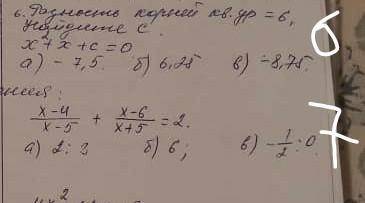 6. Разность корней кв. ур = 6,
Найдите с.
x² + x + c = 0
а) - 7,5. б) 6,25 в) -8,75.
6
7
x-4/x-5 + x-6/x+5 = 2.
а) 2; 3 б) 6; в) -1/2; 0.